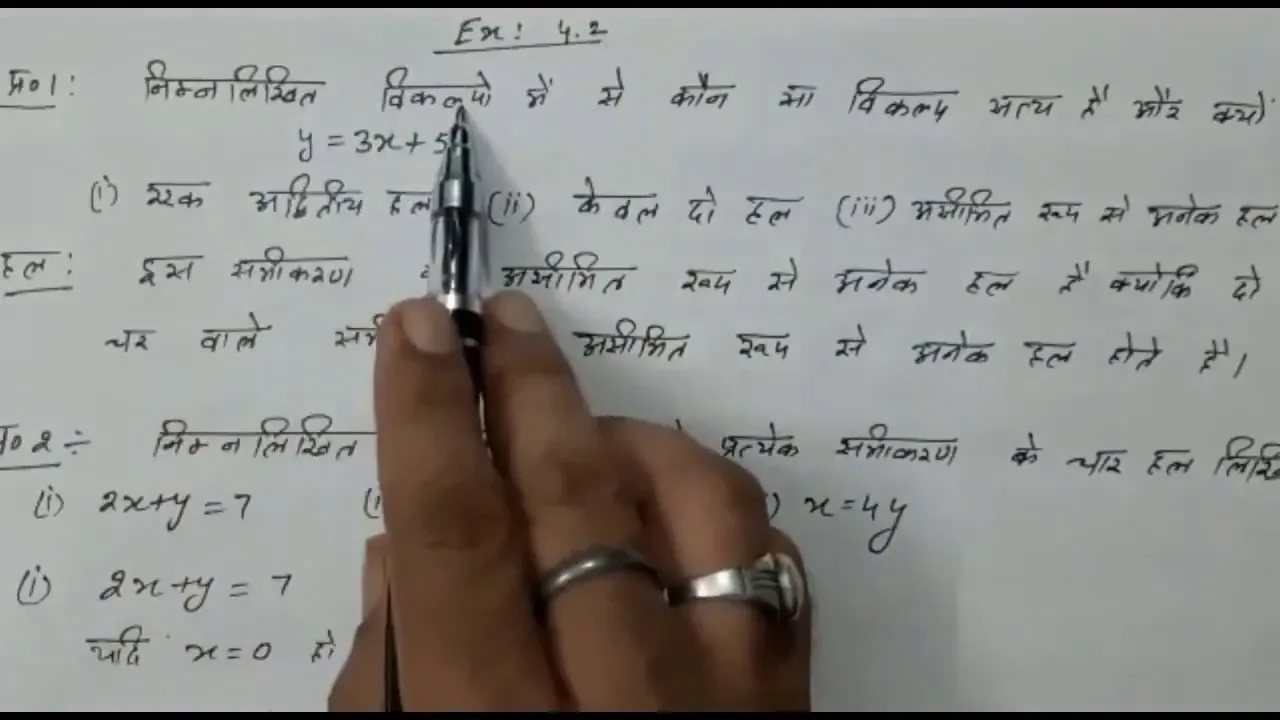 Ex: 4.2
प्र० 1: निम्नलिखित विकल्पो में से कौन सा विकल्प सत्य है और क्यों
y = 3x + 5
(i) एक अद्वितीय हल (ii) केवल दो हल (iii) असीमित रूप से अनेक हल
हल: इस समीकरण असीमित रूप से अनेक हल है क्योकि दो
चर वाले असीमित रूप से अनेक हल होते है।
प्र० 2 ÷ निम्नलिखित प्रत्येक समीकरण के चार हल
(i) 2x+y = 7 x = 4y
(i) 2x+y = 7
यदि x = 0 हो